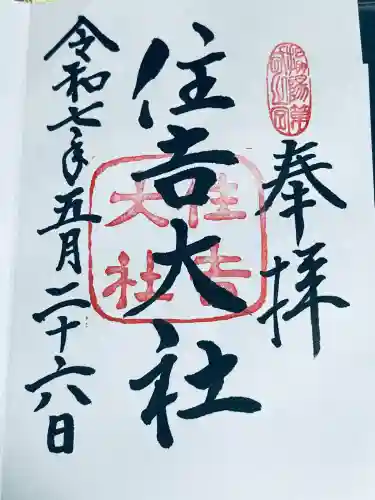 奉拝
住吉大社
住吉
大社
令和七年五月二十六日